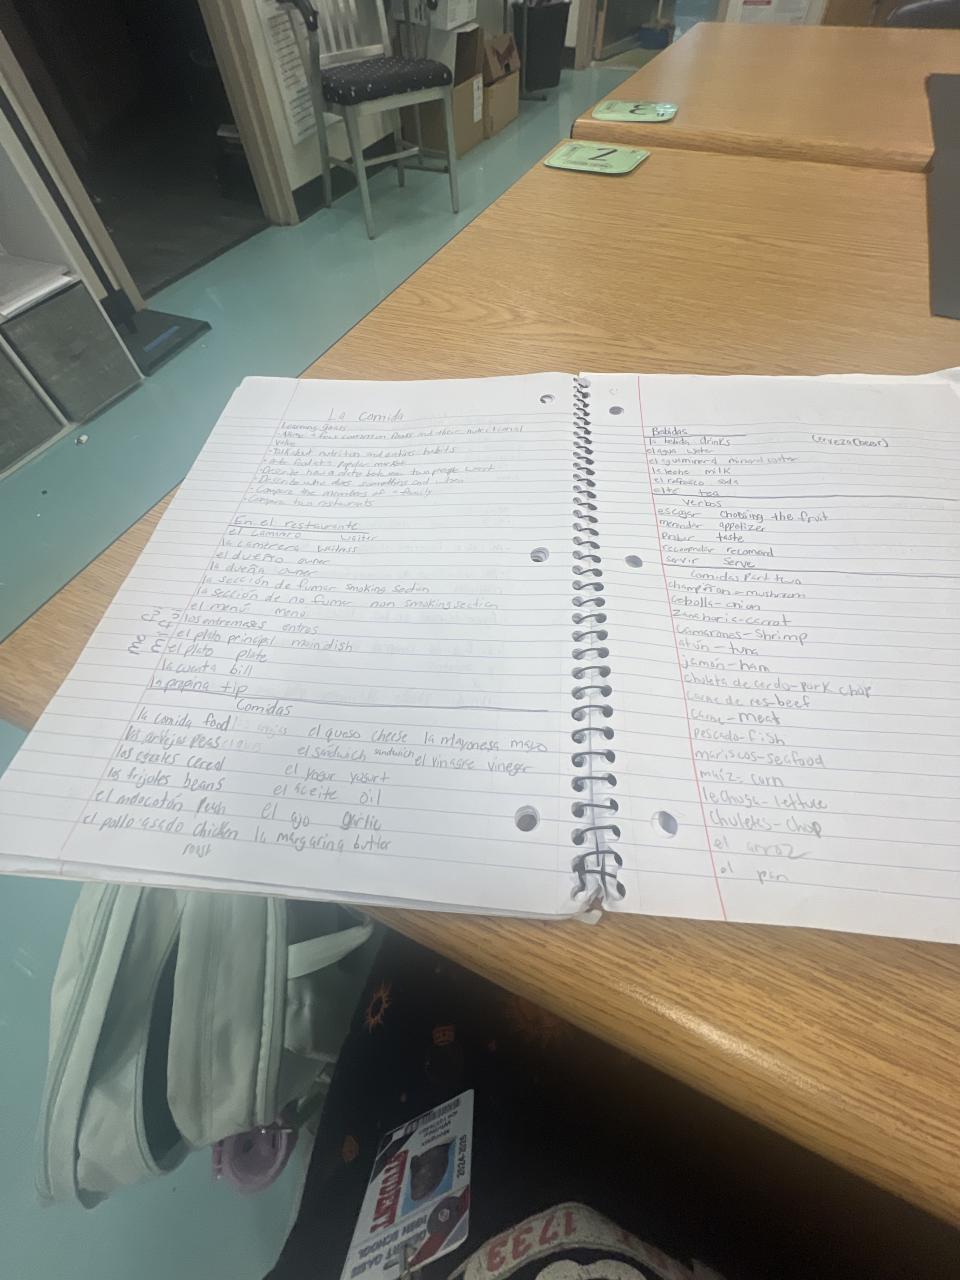 La Comida
Learning goals
- Name + four common foods and their nutritional
value
- Talk about nutrition and eating habits
food at a popular market
- Describe how a date between two people went
- Describe who does something and when
- Compare the members of a family
- Compare two restaurants
En el restaurante
el camarero waiter
la camarera waitress
el dueño owner
la dueña owner
la sección de fumar smoking section
la sección de no fumar non smoking section
el menú menu
los entremeses entros
el plato principal main dish
el plato plate
la cuenta bill
la propina tip
Comidas
la comida food el queso cheese la mayonesa mayo
las arvejas peas el sandwich sandwich el vinagre vinegar
los cereales cereal el yogur yogurt
los frijoles beans el aceite oil
el melocotón peach el ajo garlic
el pollo asado chicken la margarina butter
roast
Bebidas
la bebida drinks cerveza (beer)
el agua water
el agua mineral mineral water
la leche milk
el refresco soda
el té tea
Verbos
escoger choosing the fruit
merendar appetizer
probar taste
recomendar recomend
servir serve
Comidas Part two
champiñon-mushroom
cebolla-onion
Zanahoria-carrot
camarones-shrimp
atún-tuna
jamón-ham
chuleta de cerdo-pork chop
carne de res-beef
carne-meat
pescado-fish
mariscos-seafood
maíz-corn
lechuga-lettuce
chuletas-chop
el arroz
el pan
3
2
2024-2025
STUDENT
DESERT OASIS
HIGH SCHOOL
1733